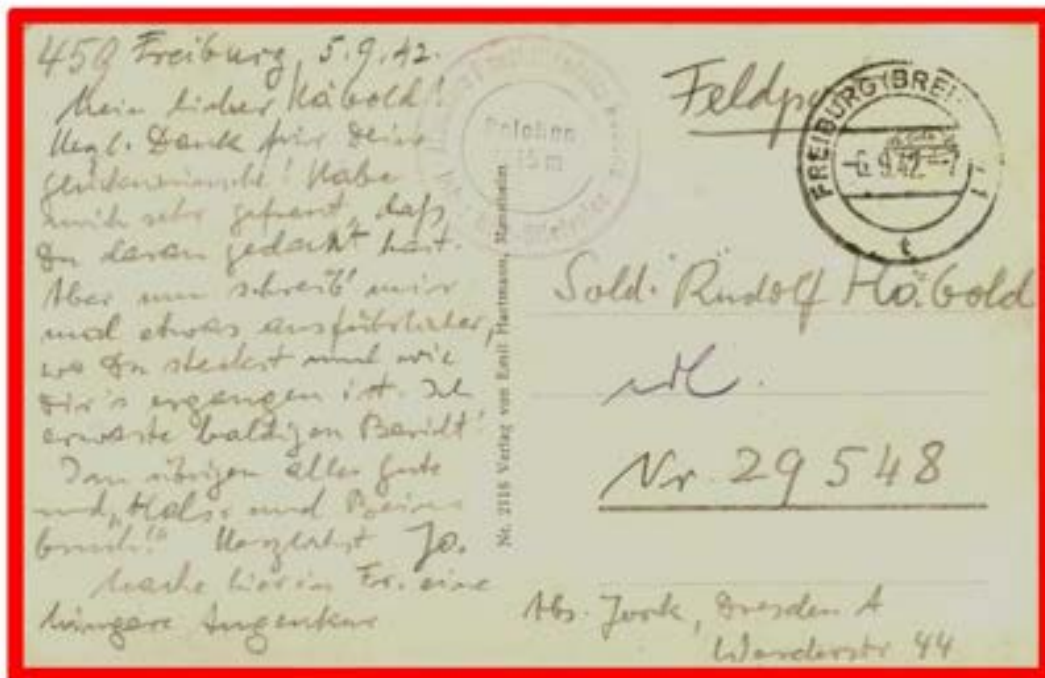 459 Freiburg, 5.9.42.
Mein lieber Häbold!
Hzgl. Dank für Deine
Glückwünsche! Habe
mich sehr gefreut, daß
Du daran gedacht hast.
Aber nun schreib' mir
mal etwas ausführlicher,
wo Du steckst und wie
Dir's ergangen ist. Ich
erwarte baldigen Bericht!
Im übrigen alles Gute
und „Hals- und Bein-
bruch!" Herzlichst Jo.
Mache hier in Fr. eine
längere Augenkur
Belchen
Nr. 2116 Verlag von Emil Hartmann, Mannheim
Feldpost
FREIBURG (BREI
-6.9.42.-7
t
Sold. Rudolf Häbold
Nr. 29548
Abs. Jork, Dresden A
Werderstr 44